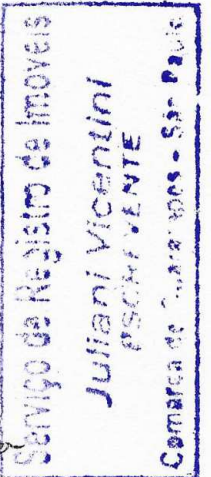 Serviço de Registro de Imóveis
Juliani Vicentini
ESCREVENTE
Comarca de - São Paulo